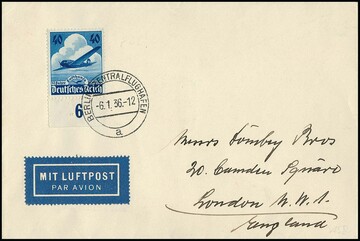 40 40
Deutsches Reich
6
BERLIN ZENTRALFLUGHAFEN
-6.1.36.-12
a
MIT LUFTPOST
PAR AVION
Messrs Bros
20. Camden Square
London N.W.1.
England